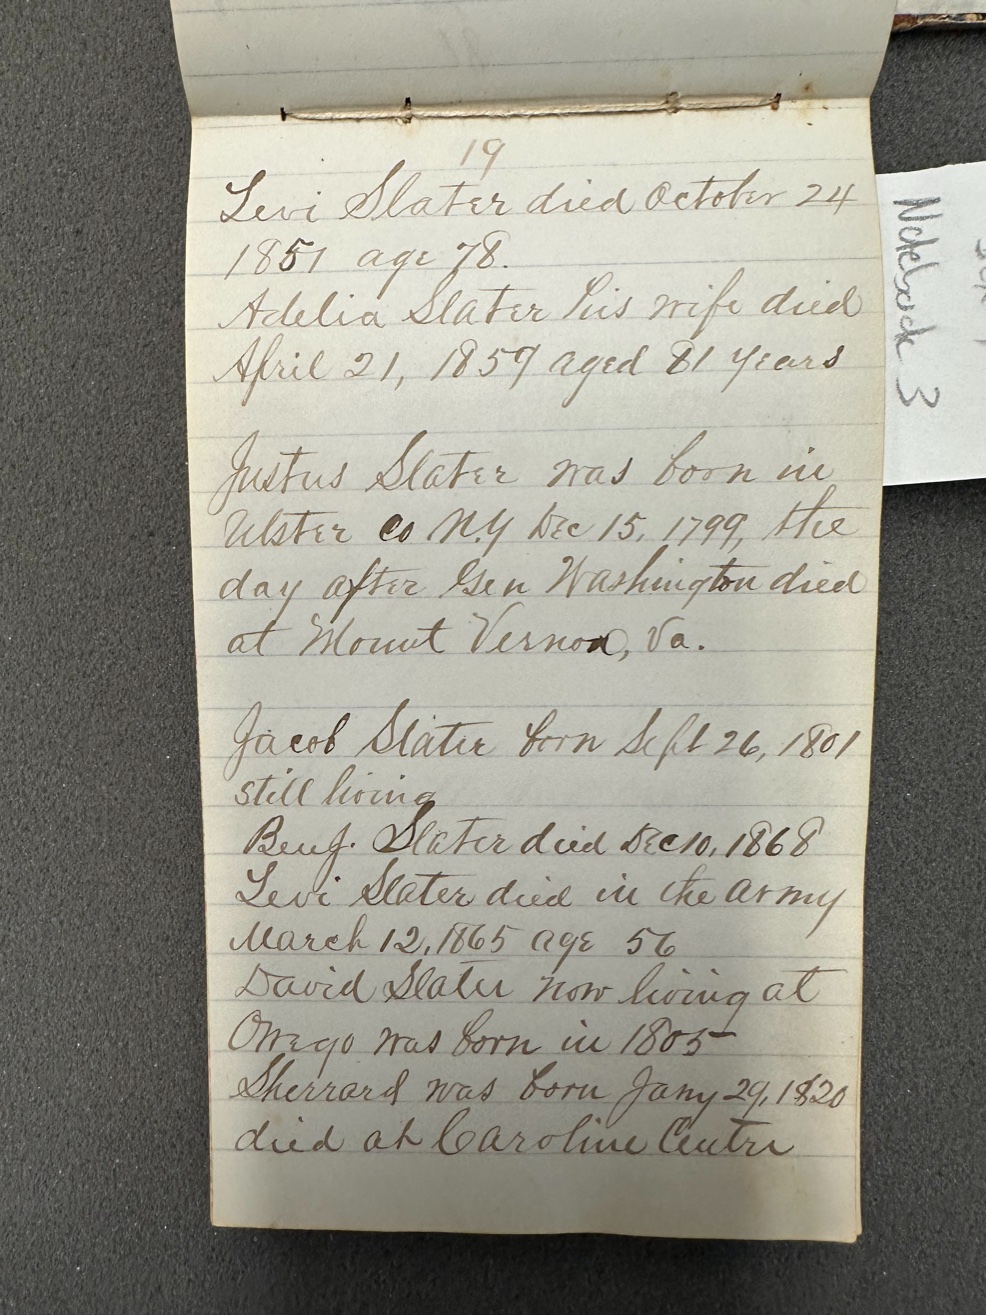 19
Levi Slater died October 24
1851 age 78.
Adelia Slater his wife died
April 21, 1859 aged 81 years
Justus Slater was born in
Ulster co N.Y Dec 15, 1799, the
day after Gen Washington died
at Mount Vernon, Va.
Jacob Slater born Sept 26, 1801
still living
Benj. Slater died Dec 10, 1868
Levi Slater died in the army
March 12, 1865 age 56
David Slater now living at
Owego was born in 1805
Sherrard was born Jany 29, 1820
died at Caroline Centre
Notebook 3